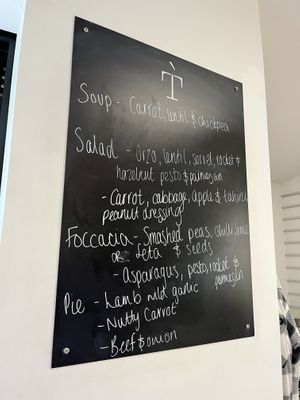 T̀
Soup - Carrot, lentil & chickpea
Salad - Orzo, lentil, sorrel, rocket &
hazelnut pesto & parmesan
- Carrot, cabbage, apple & tahini
peanut dressing
Foccacia - Smashed peas, chilli,
or feta & seeds
- Asparagus, pesto, rocket &
parmesan
Pie - Lamb wild garlic
- Nutty Carrot
- Beef & onion